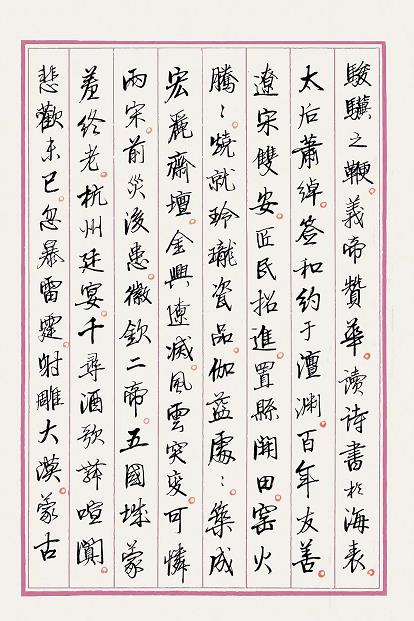 駿驥之鞭。義帝贊華。讀詩書於海表。
太后蕭綽。簽和約于澶淵。百年友善。
遼宋雙安。匠民招進。置縣開田。窑火
騰〻燒就玲瓏瓷品。伽藍處〻。築成
宏麗齋壇。金興遼滅。風雲突变。可憐
兩宋。前災後患。徽欽二帝。五國城蒙
羞終老。杭州廷宴。千尋酒歌舞喧闐。
悲歡未已。忽暴雷霆。射雕大漠。蒙古